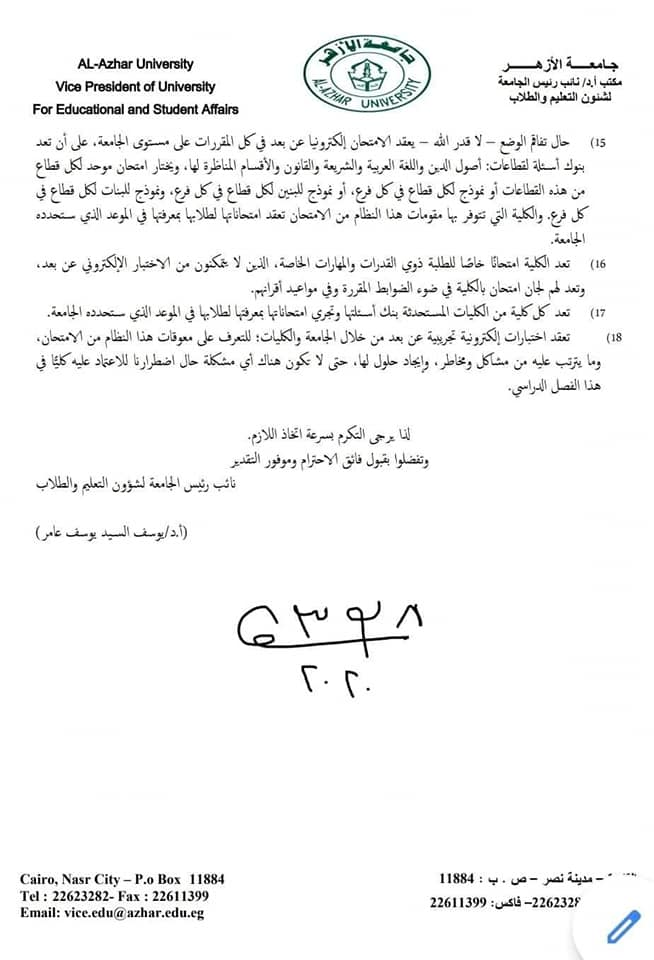 AL-Azhar University
Vice President of University
For Educational and Student Affairs
جامعة الأزهر
AL-AZHAR UNIVERSITY
جامعـــة الأزهـــر
مكتب أ.د/ نائب رئيس الجامعة
لشئون التعليم والطلاب
15) حال تفاقم الوضع – لا قدر الله – يعقد الامتحان إلكترونيا عن بعد في كل المقررات على مستوى الجامعة، على أن تعد
بنوك أسئلة لقطاعات: أصول الدين واللغة العربية والشريعة والقانون والأقسام المناظرة لها، ويختار امتحان موحد لكل قطاع
من هذه القطاعات أو نموذج لكل قطاع في كل فرع، أو نموذج للبنين لكل قطاع في كل فرع، ونموذج للبنات لكل قطاع في
كل فرع. والكلية التي تتوفر بها مقومات هذا النظام من الامتحان تعقد امتحاناتها لطلابها بمعرفتها في الموعد الذي ستحدده
الجامعة.
16) تعد الكلية امتحانًا خاصًا للطلبة ذوي القدرات والمهارات الخاصة، الذين لا يتمكنون من الاختبار الإلكتروني عن بعد،
وتعد لهم لجان امتحان بالكلية في ضوء الضوابط المقررة وفي مواعيد أقرانهم.
17) تعد كل كلية من الكليات المستحدثة بنك أسئلتها وتجري امتحاناتها بمعرفتها لطلابها في الموعد الذي ستحدده الجامعة.
18) تعقد اختبارات إلكترونية تجريبية عن بعد من خلال الجامعة والكليات؛ للتعرف على معوقات هذا النظام من الامتحان،
وما يترتب عليه من مشاكل ومخاطر، وإيجاد حلول لها، حتى لا يكون هناك أي مشكلة حال اضطرارنا للاعتماد عليه كليًا في
هذا الفصل الدراسي.
لذا يرجى التكرم بسرعة اتخاذ اللازم.
وتفضلوا بقبول فائق الاحترام وموفور التقدير
نائب رئيس الجامعة لشؤون التعليم والطلاب
(أ.د/يوسف السيد يوسف عامر)
٢٠٢٠
Cairo, Nasr City – P.o Box 11884
Tel : 22623282- Fax : 22611399
Email: vice.edu@azhar.edu.eg
– مدينة نصر – ص . ب : 11884
– فاكس: 22611399